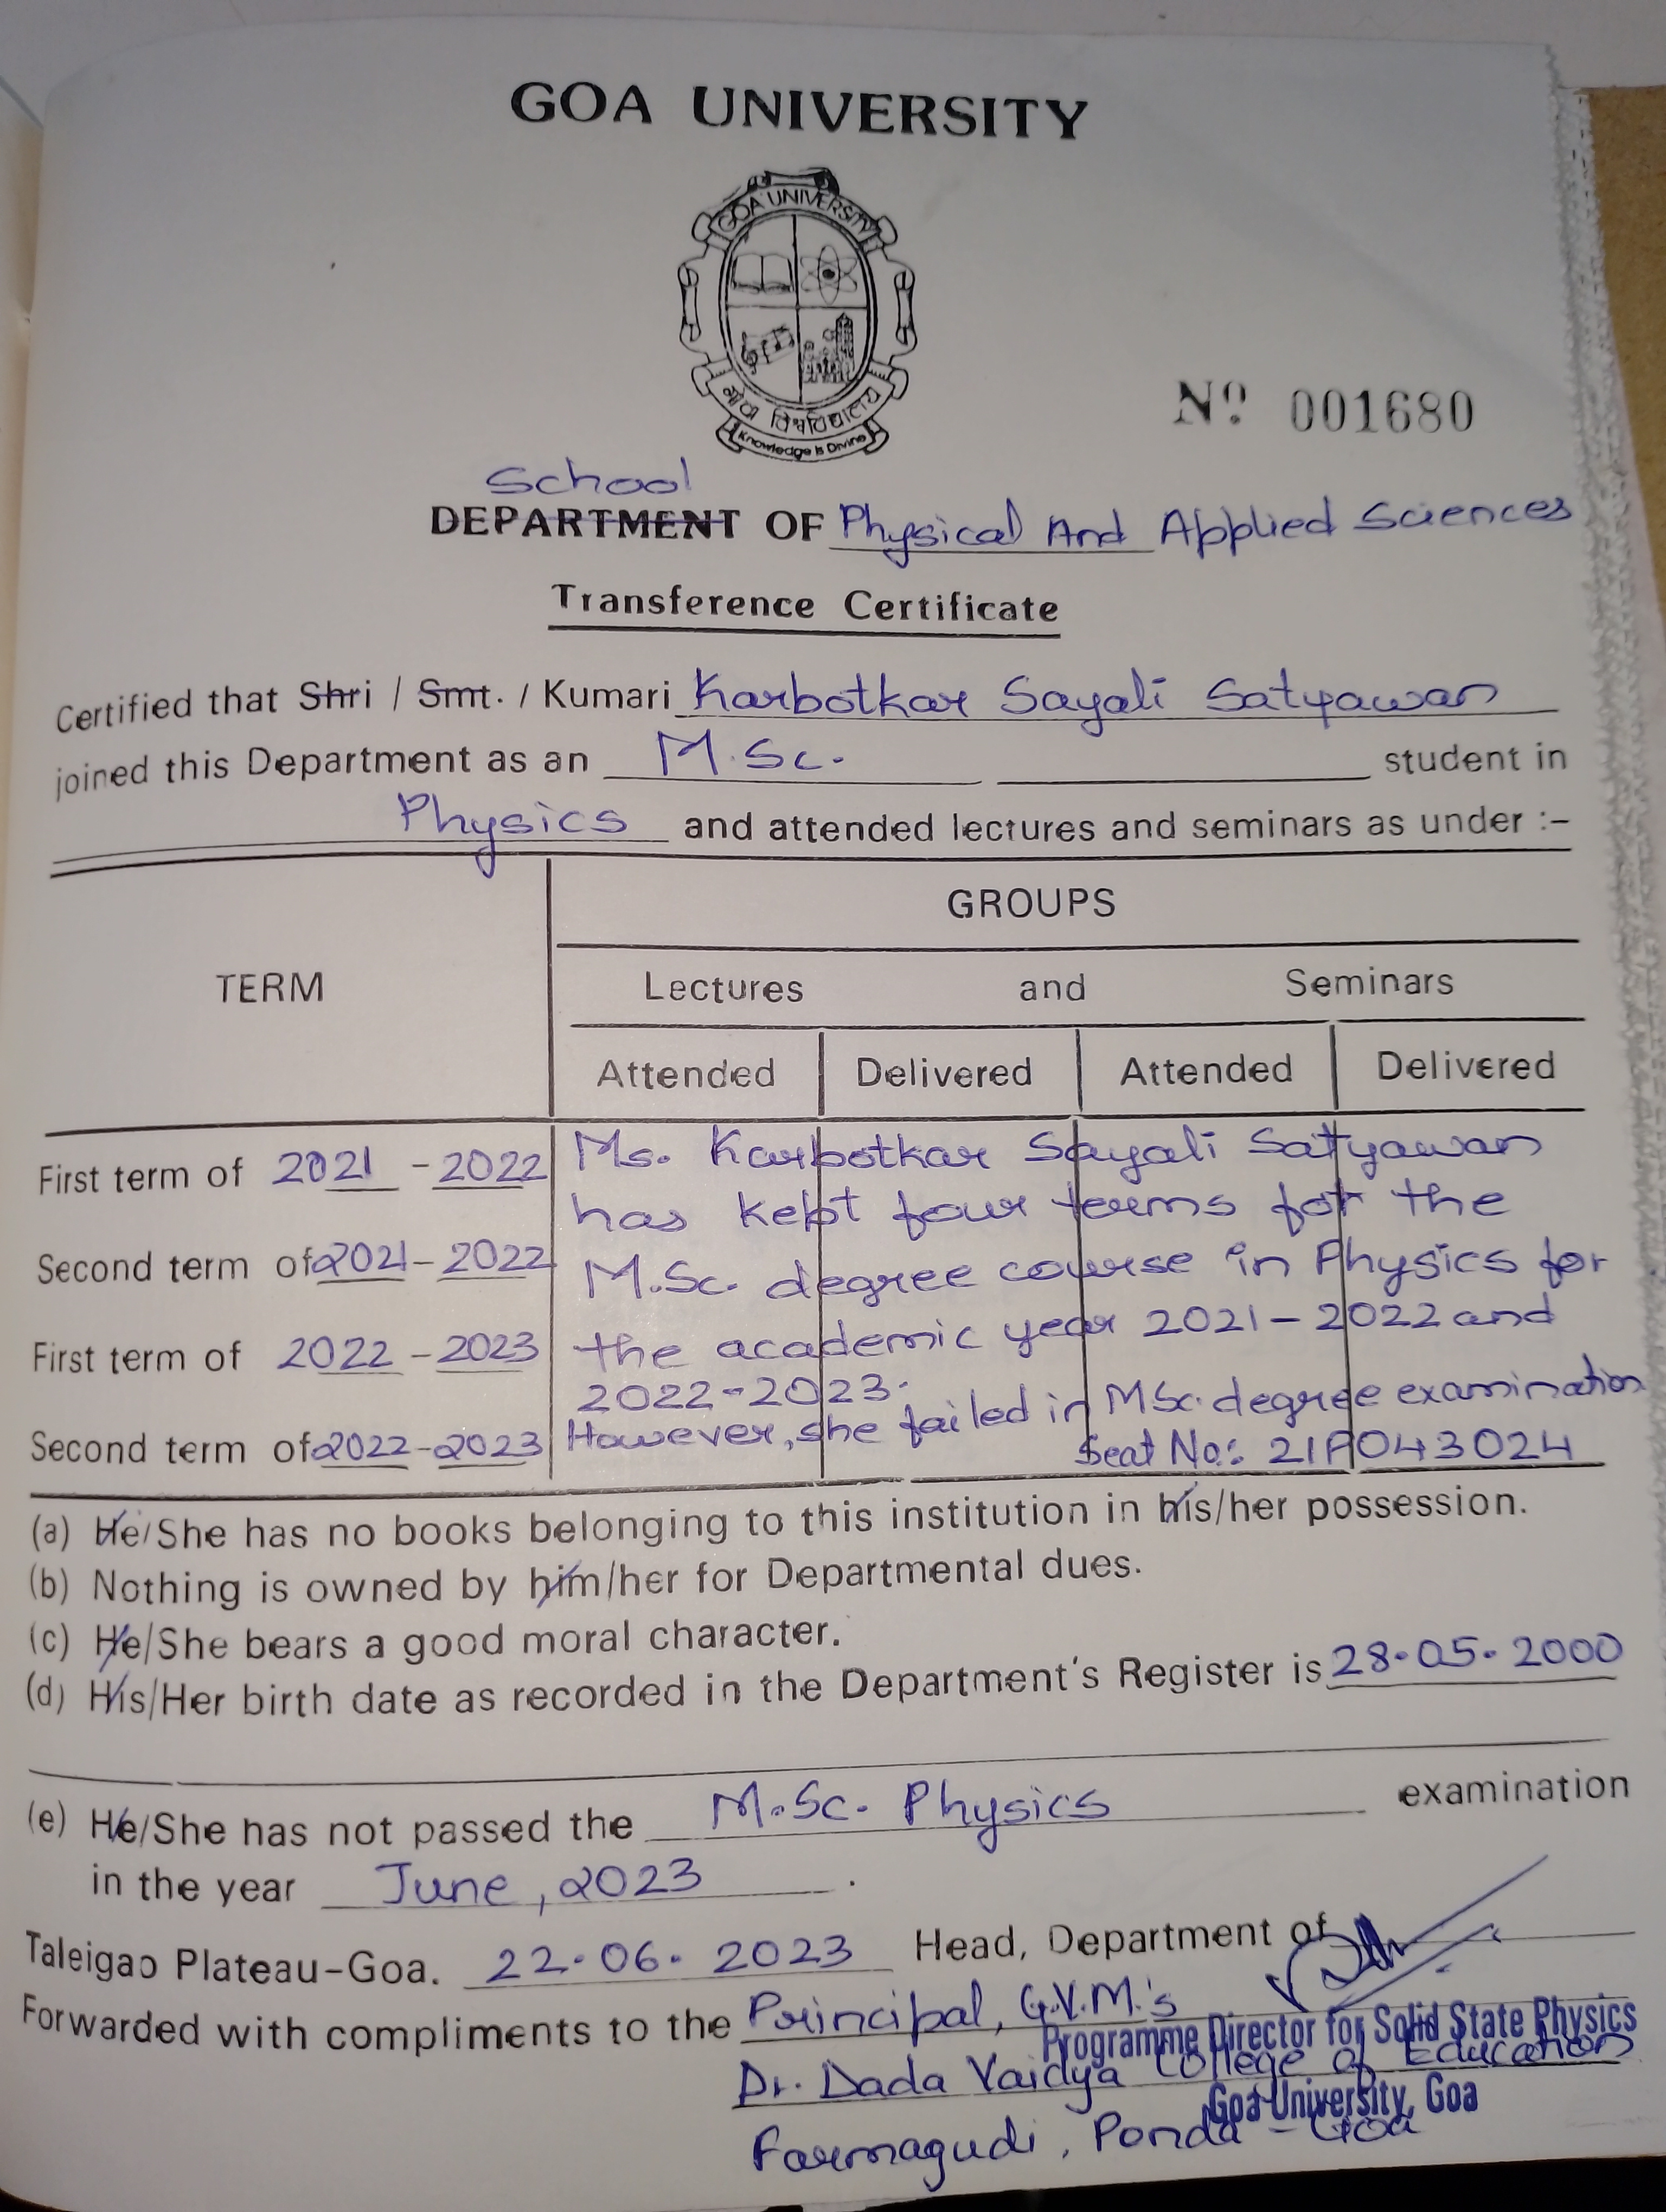 GOA UNIVERSITY
GOA UNIVERSITY
गोंवा विश्वविद्यालय
Knowledge is Divine
Nº 001680
School
DEPARTMENT OF Physical And Applied Sciences
Transference Certificate
Certified that Shri / Smt. / Kumari Karbotkar Sayali Satyawan
joined this Department as an M.Sc. student in
Physics and attended lectures and seminars as under :-
GROUPS
TERM
Lectures and Seminars
Attended Delivered Attended Delivered
First term of 2021 - 2022
Second term of 2021 - 2022
First term of 2022 - 2023
Second term of 2022 - 2023
Ms. Karbotkar Sayali Satyawan
has kept four terms for the
M.Sc. degree course in Physics for
the academic year 2021 - 2022 and
2022-2023.
However, she failed in MSc. degree examination
Seat No.: 21P043024
(a) He/She has no books belonging to this institution in his/her possession.
(b) Nothing is owned by him/her for Departmental dues.
(c) He/She bears a good moral character.
(d) His/Her birth date as recorded in the Department's Register is 28.05.2000
(e) He/She has not passed the M.Sc. Physics examination
in the year June, 2023.
Taleigao Plateau-Goa. 22.06.2023 Head, Department of
Forwarded with compliments to the Principal, G.V.M.'s
Programme Director for Solid State Physics
Dr. Dada Vaidya College of Education
Goa University, Goa
Farmagudi, Ponda - Goa